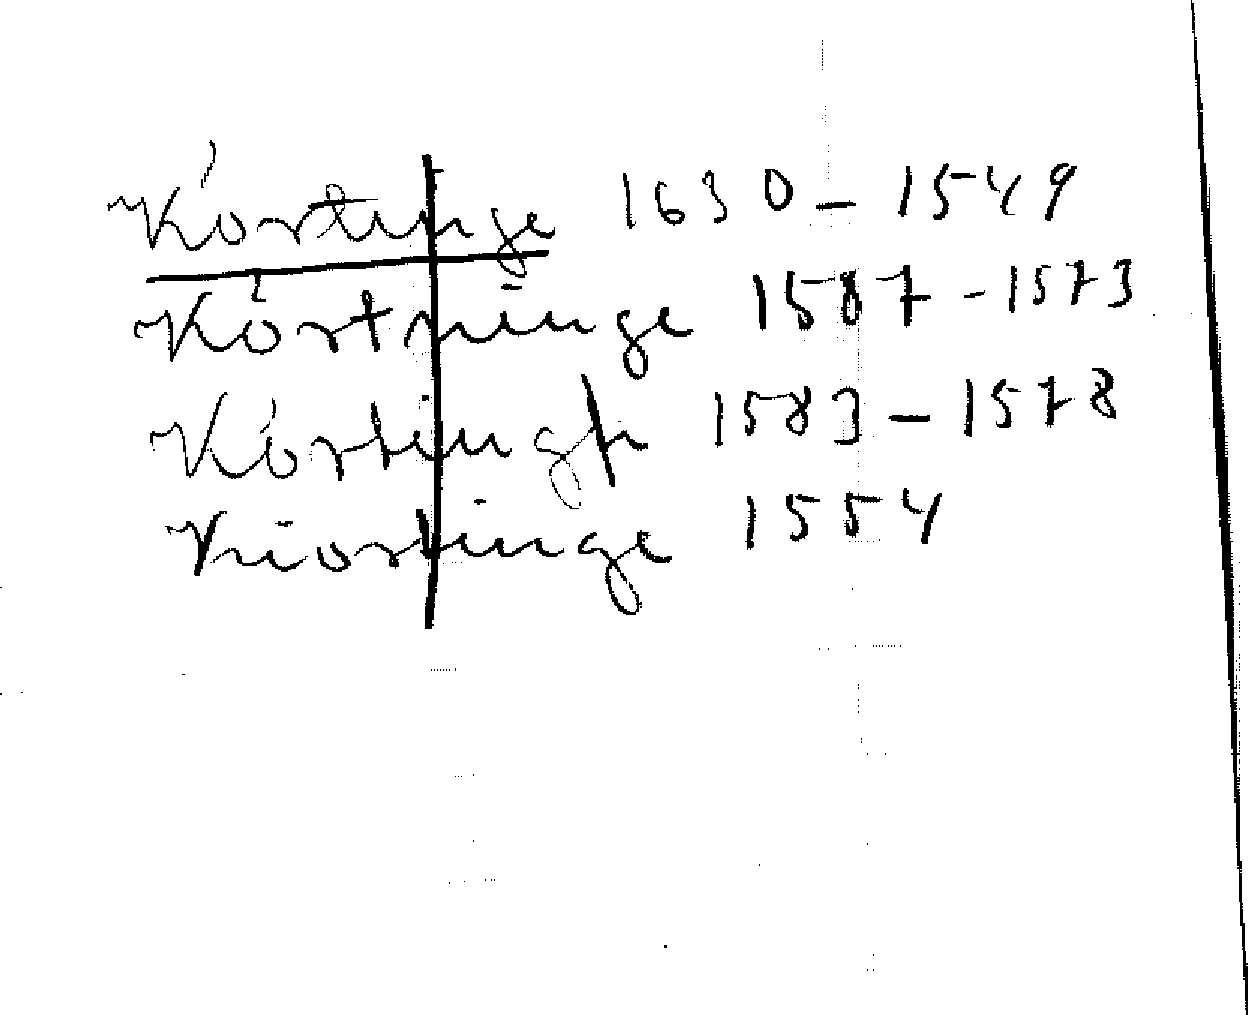 Körtinge 1630 – 1549
Körtninge 1587 – 1573
Körtingh 1583 – 1578
Kiörtinge 1554